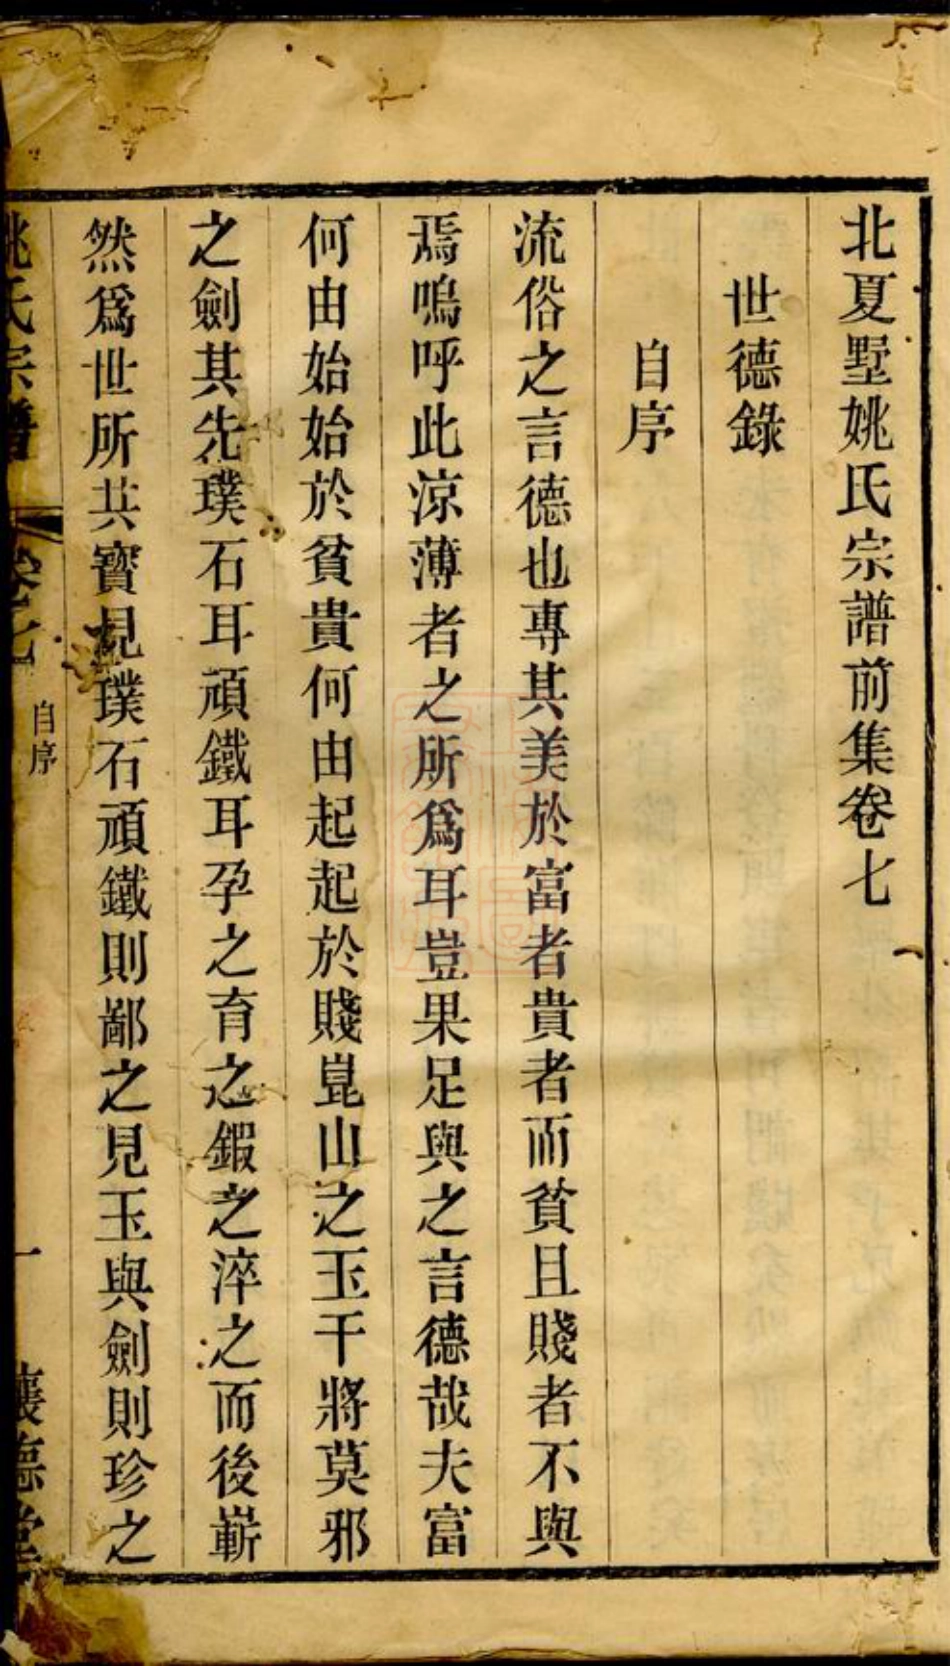 北夏墅姚氏宗譜前集卷七
世德錄
自序
流俗之言德也專其美於富者貴者而貧且賤者不與
焉嗚呼此涼薄者之所爲耳豈果足與之言德哉夫富
何由始始於貧貴何由起起於賤崑山之玉干將莫邪
之劍其先璞石耳頑鐵耳孕之育之鍜之淬之而後嶄
然爲世所共寶見璞石頑鐵則鄙之見玉與劍則珍之
姚氏宗譜
卷七
自序
一